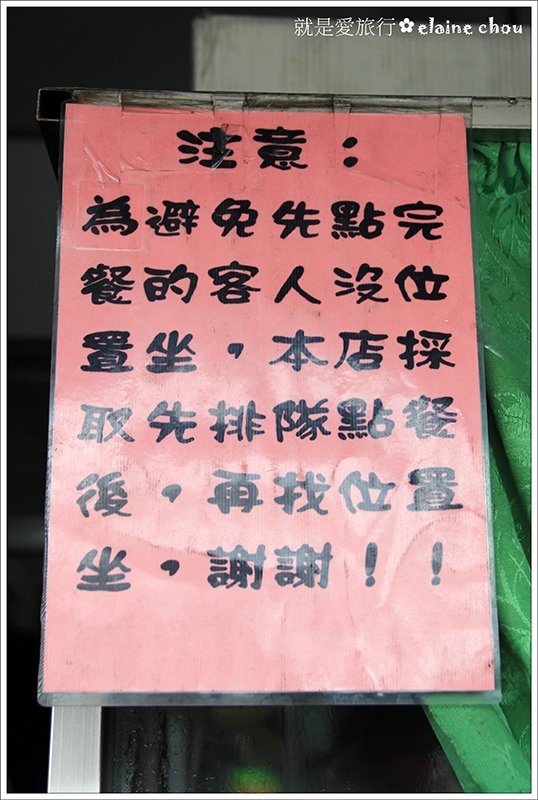 就是愛旅行✿elaine chou
注意：
為避免先點完
餐的客人沒位
置坐，本店採
取先排隊點餐
後，再找位置
坐，謝謝！！